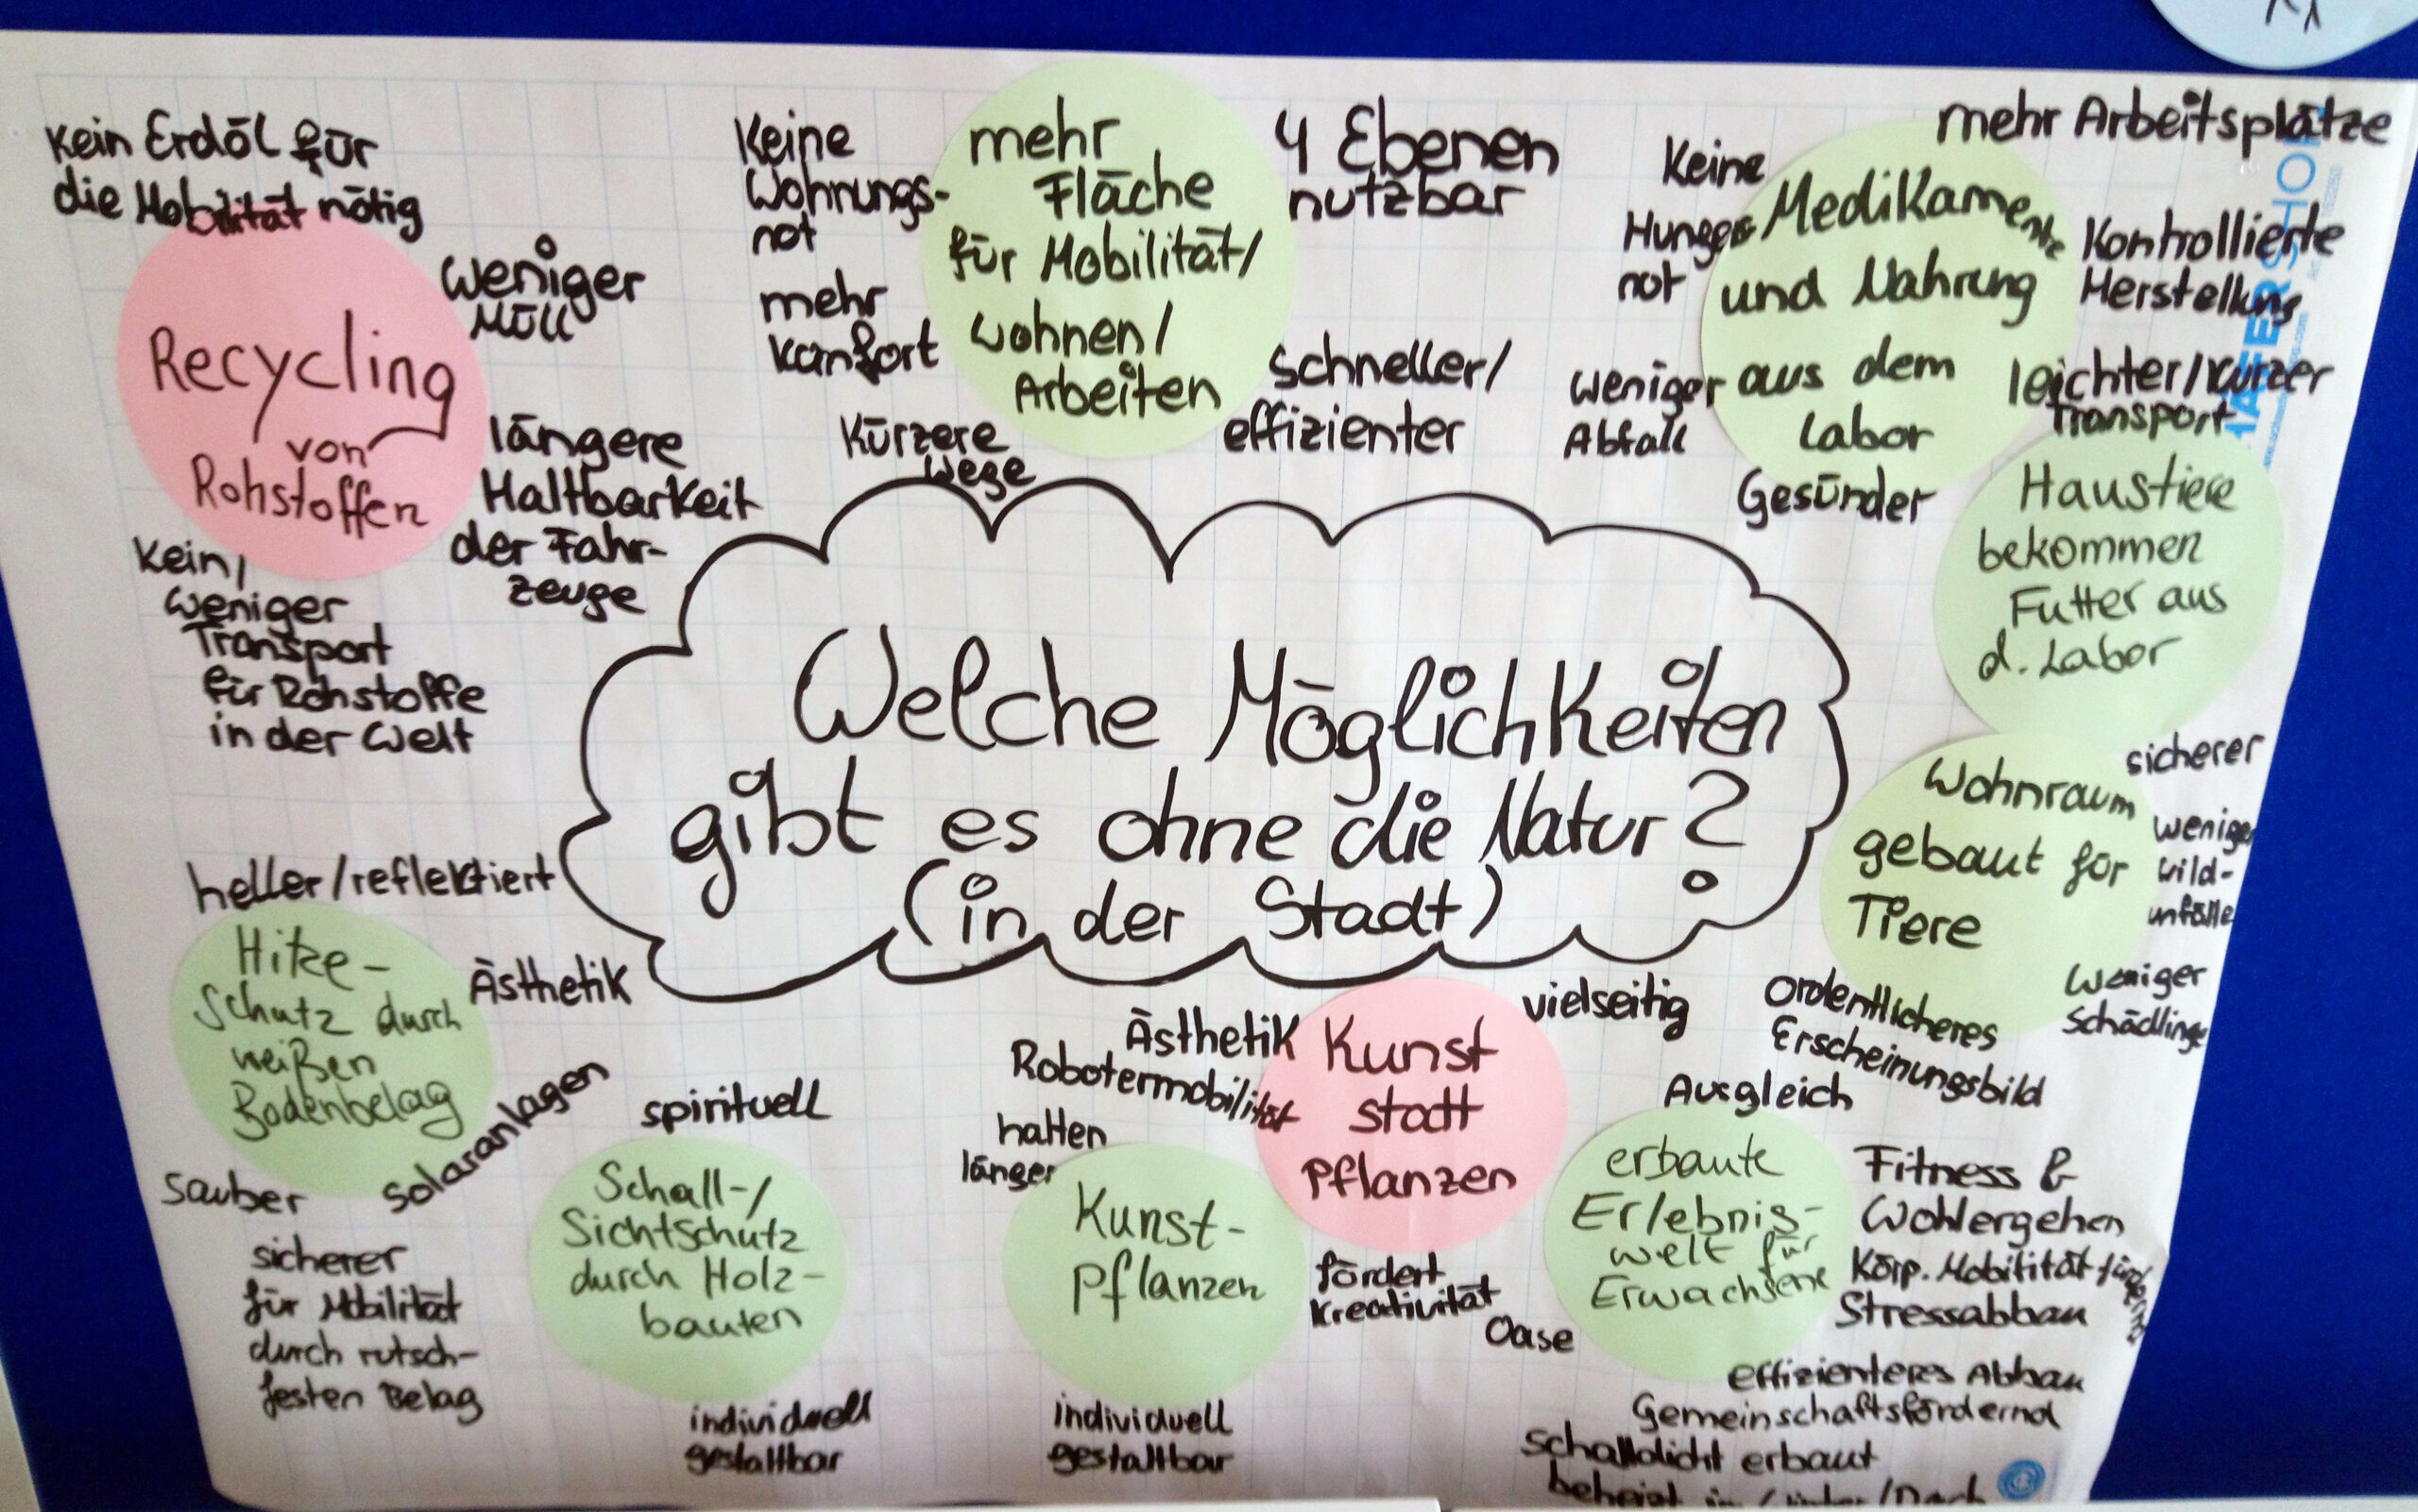 Kein Erdöl für
die Mobilität nötig
Recycling
von
Rohstoffen
weniger
Müll
längere
Haltbarkeit
der Fahr-
zeuge
Kein/
weniger
Transport
für Rohstoffe
in der Welt
Keine
Wohnungs-
not
mehr
Komfort
Kürzere
Wege
mehr
Fläche
für Mobilität/
wohnen/
Arbeiten
4 Ebenen
nutzbar
schneller/
effizienter
mehr Arbeitsplätze
Keine
Hungers
not
weniger
Abfall
Medikamente
und Nahrung
aus dem
Labor
Gesünder
Kontrollierte
Herstellung
leichter/kürzer
Transport
Haustiere
bekommen
Futter aus
d. Labor
Welche Möglichkeiten
gibt es ohne die Natur?
(in der Stadt)
Wohnraum
gebaut für
Tiere
sicherer
weniger
Wild-
unfälle
weniger
Schädlinge
ordentlicheres
Erscheinungsbild
heller/reflektiert
Hitze-
Schutz durch
weißen
Bodenbelag
Ästhetik
Solaranlagen
sauber
sicherer
für Mobilität
durch rutsch-
festen Belag
spirituell
Schall-/
Sichtschutz
durch Holz-
bauten
individuell
gestaltbar
Ästhetik
Robotermobilität
halten
länger
Kunst-
pflanzen
individuell
gestaltbar
Kunst
statt
Pflanzen
vielseitig
fördert
Kreativität
Oase
Ausgleich
erbaute
Erlebnis-
welt für
Erwachsene
Fitness &
Wohlergehen
Körp. Mobilität
Stressabbau
effizienteres Abbau
Gemeinschaftsfördernd
schalldicht erbaut